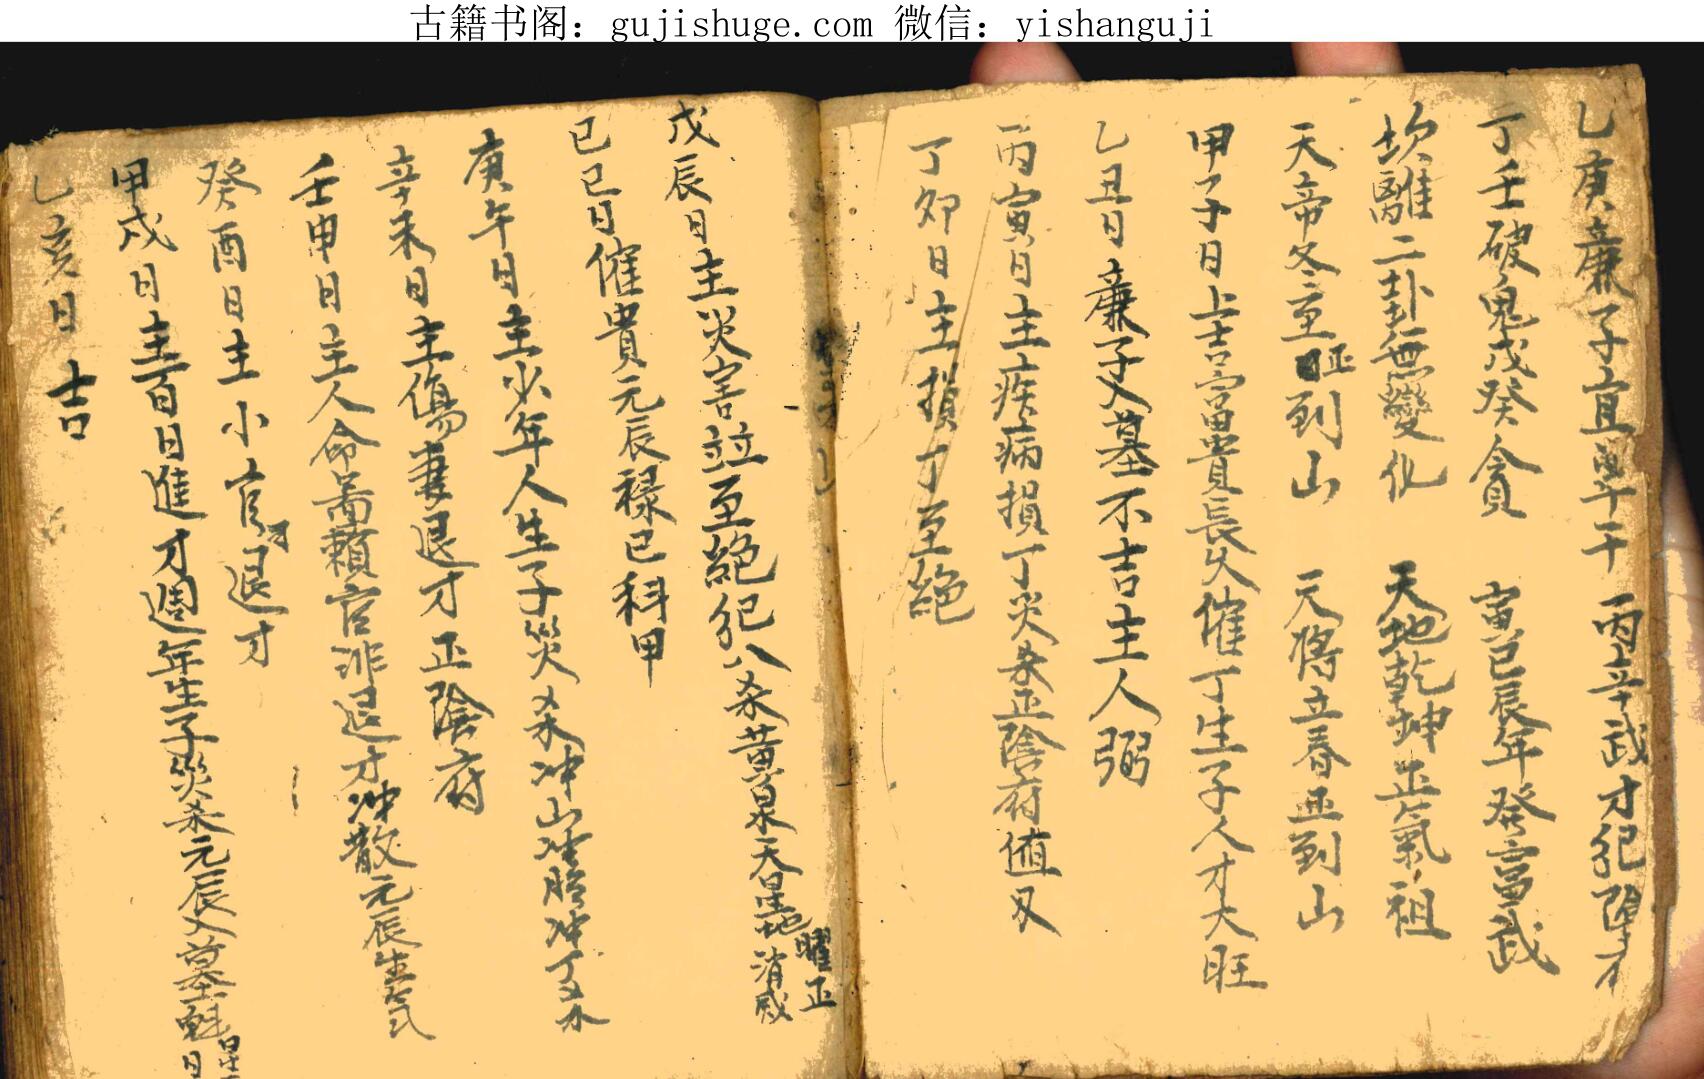 古籍书阁：gujishuge.com 微信：yishanguji
乙庚廉子直 干 丙辛武才犯 才
丁壬破鬼戊癸貪 寅巳辰年癸富武
坎離二卦無變化 天地乾坤正氣祖
天帝冬至 到山 天將立春 到山
甲子日上吉富貴長久催丁生子人才大旺
乙丑日廉子入墓不吉主人弱
丙寅日主疾病損丁災杀正陰府值又
丁卯日主損丁至絕
戊辰日主災害並至絕犯八杀黄泉天星地曜正消威
己巳日催貴元辰禄巳科甲
庚午日主少年人生子災杀冲山 冲丁
辛未日主傷妻退才正陰府
壬申日主人命 賴官非退才冲散元辰生
癸酉日主小官 退才
甲戌日主百日進才週年生子災杀元辰入墓 日
乙亥日吉